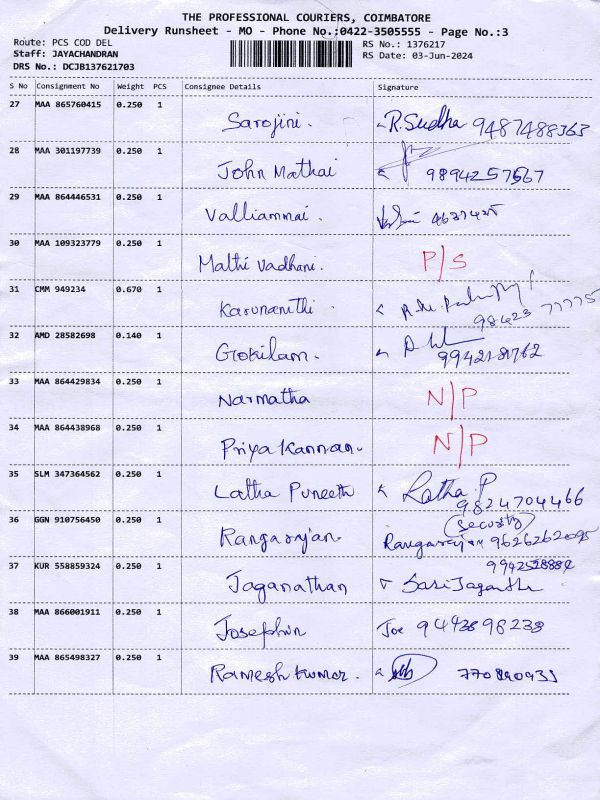 THE PROFESSIONAL COURIERS, COIMBATORE
Delivery Runsheet - MO - Phone No.:0422-3505555 - Page No.:3
Route: PCS COD DEL RS No.: 1376217
Staff: JAYACHANDRAN RS Date: 03-Jun-2024
DRS No.: DCJB137621703
S No Consignment No Weight PCS Consignee Details Signature
27 MAA 865760415 0.250 1 Sarojini. R. Sudha 9487488363
28 MAA 301197739 0.250 1 John Mathai 9894257567
29 MAA 864446531 0.250 1 Valliammai.
30 MAA 109323779 0.250 1 Mathi vadhani. P/S
31 CMM 949234 0.670 1 Karunanithi. 98423 77775
32 AMD 28582698 0.140 1 Gokilam.
33 MAA 864429834 0.250 1 Narmatha N/P
34 MAA 864438968 0.250 1 Priya Kannan. N/P
35 SLM 347364562 0.250 1 Latha Puneeth Latha P 9824704466
36 GGN 910756450 0.250 1 Rangarajan. (Security) Rangarajan
37 KUR 558859324 0.250 1 Jaganathan
38 MAA 866001911 0.250 1 Josephin Joe
39 MAA 865498327 0.250 1 Ramesh kumar.